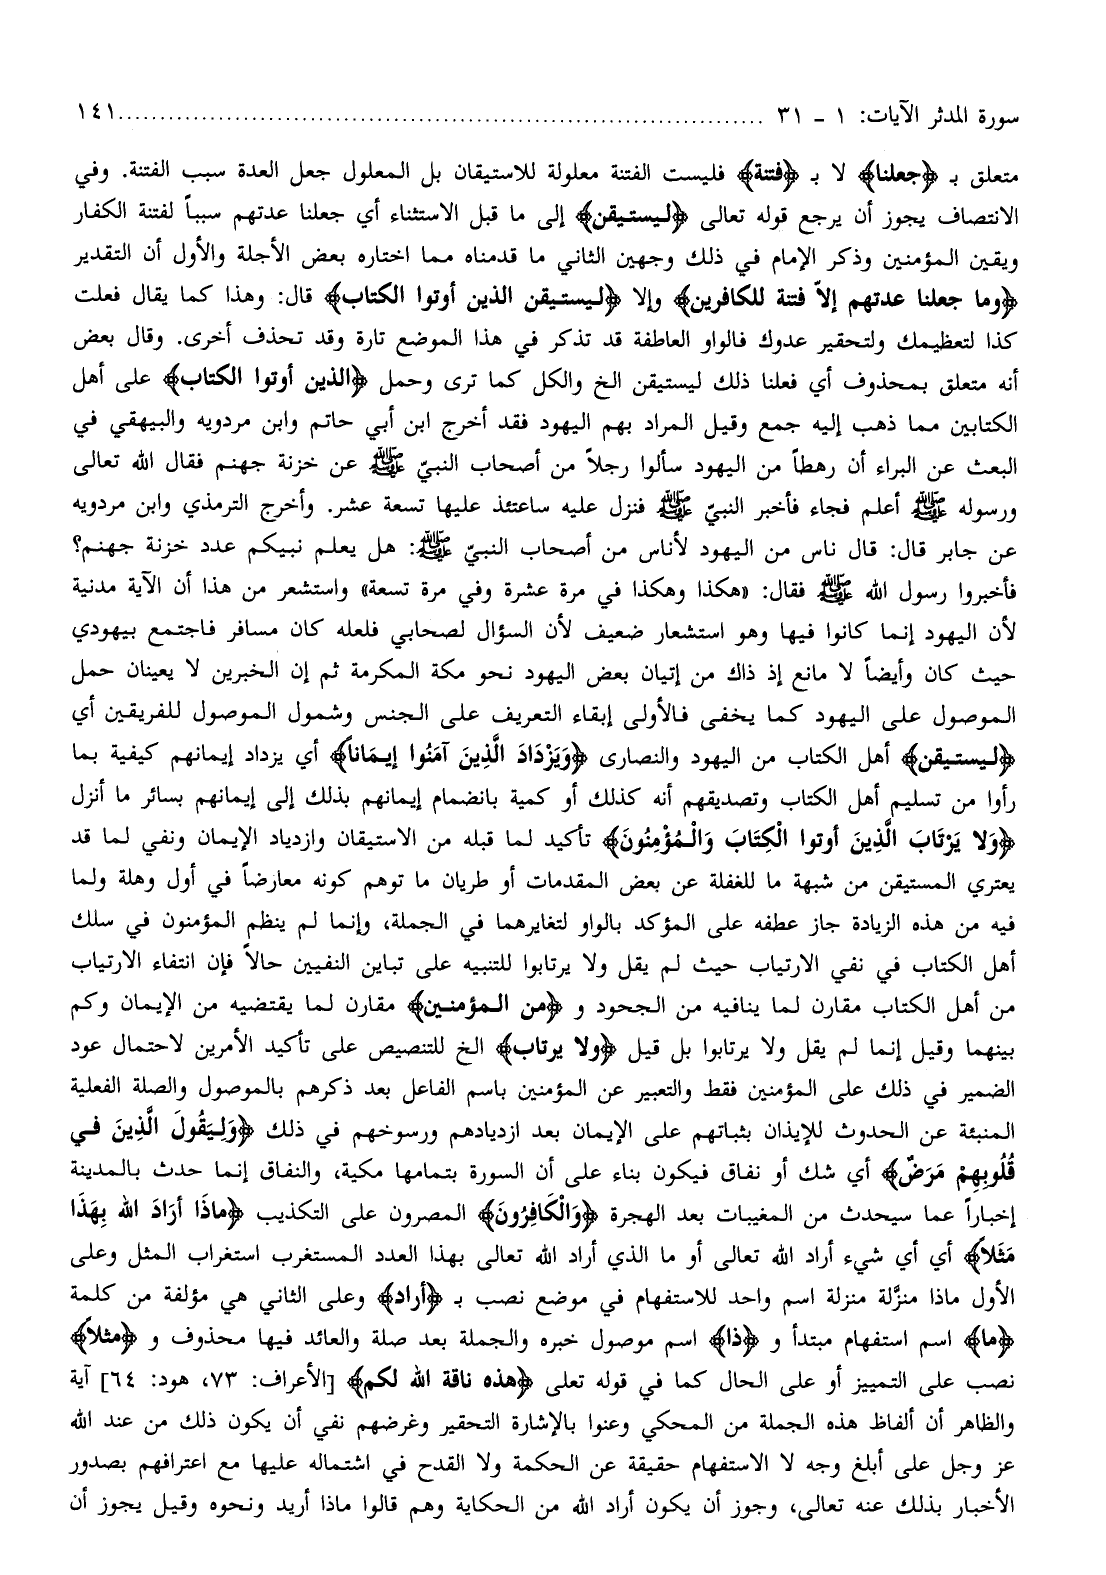 سورة المدثر الآيات: ١ ـ ٣١ ........................................................................ ١٤١
متعلق بـ ﴿جعلنا﴾ لا بـ ﴿فتنة﴾ فليست الفتنة معلولة للاستيقان بل المعلول جعل العدة سبب الفتنة. وفي
الانتصاف يجوز أن يرجع قوله تعالى ﴿ليستيقن﴾ إلى ما قبل الاستثناء أي جعلنا عدتهم سبباً لفتنة الكفار
ويقين المؤمنين وذكر الإمام في ذلك وجهين الثاني ما قدمناه مما اختاره بعض الأجلة والأول أن التقدير
﴿وما جعلنا عدتهم إلاّ فتنة للكافرين﴾ وإلا ﴿ليستيقن الذين أوتوا الكتاب﴾ قال: وهذا كما يقال فعلت
كذا لتعظيمك ولتحقير عدوك فالواو العاطفة قد تذكر في هذا الموضع تارة وقد تحذف أخرى. وقال بعض
أنه متعلق بمحذوف أي فعلنا ذلك ليستيقن الخ والكل كما ترى وحمل ﴿الذين أوتوا الكتاب﴾ على أهل
الكتابين مما ذهب إليه جمع وقيل المراد بهم اليهود فقد أخرج ابن أبي حاتم وابن مردويه والبيهقي في
البعث عن البراء أن رهطاً من اليهود سألوا رجلاً من أصحاب النبيّ ﷺ عن خزنة جهنم فقال الله تعالى
ورسوله ﷺ أعلم فجاء فأخبر النبيّ ﷺ فنزل عليه ساعتئذ عليها تسعة عشر. وأخرج الترمذي وابن مردويه
عن جابر قال: قال ناس من اليهود لأناس من أصحاب النبيّ ﷺ: هل يعلم نبيكم عدد خزنة جهنم؟
فأخبروا رسول الله ﷺ فقال: «هكذا وهكذا في مرة عشرة وفي مرة تسعة» واستشعر من هذا أن الآية مدنية
لأن اليهود إنما كانوا فيها وهو استشعار ضعيف لأن السؤال لصحابي فلعله كان مسافر فاجتمع بيهودي
حيث كان وأيضاً لا مانع إذ ذاك من إتيان بعض اليهود نحو مكة المكرمة ثم إن الخبرين لا يعينان حمل
الموصول على اليهود كما يخفى فالأولى إبقاء التعريف على الجنس وشمول الموصول للفريقين أي
﴿ليستيقن﴾ أهل الكتاب من اليهود والنصارى ﴿وَيَزْدَادَ الَّذِينَ آمَنُوا إيمَاناً﴾ أي يزداد إيمانهم كيفية بما
رأوا من تسليم أهل الكتاب وتصديقهم أنه كذلك أو كمية بانضمام إيمانهم بذلك إلى إيمانهم بسائر ما أنزل
﴿وَلا يَرْتَابَ الَّذِينَ أوتوا الْكِتَابَ وَالْمُؤْمِنُونَ﴾ تأكيد لما قبله من الاستيقان وازدياد الإيمان ونفي لما قد
يعتري المستيقن من شبهة ما للغفلة عن بعض المقدمات أو طريان ما توهم كونه معارضاً في أول وهلة ولما
فيه من هذه الزيادة جاز عطفه على المؤكد بالواو لتغايرهما في الجملة، وإنما لم ينظم المؤمنون في سلك
أهل الكتاب في نفي الارتياب حيث لم يقل ولا يرتابوا للتنبيه على تباين النفيين حالاً فإن انتفاء الارتياب
من أهل الكتاب مقارن لما ينافيه من الجحود و ﴿من المؤمنين﴾ مقارن لما يقتضيه من الإيمان وكم
بينهما وقيل إنما لم يقل ولا يرتابوا بل قيل ﴿ولا يرتاب﴾ الخ للتنصيص على تأكيد الأمرين لاحتمال عود
الضمير في ذلك على المؤمنين فقط والتعبير عن المؤمنين باسم الفاعل بعد ذكرهم بالموصول والصلة الفعلية
المنبئة عن الحدوث للإيذان بثباتهم على الإيمان بعد ازديادهم ورسوخهم في ذلك ﴿وَلِيَقُولَ الَّذِينَ في
قُلُوبِهِمْ مَرَضٌ﴾ أي شك أو نفاق فيكون بناء على أن السورة بتمامها مكية، والنفاق إنما حدث بالمدينة
إخباراً عما سيحدث من المغيبات بعد الهجرة ﴿وَالْكَافِرُونَ﴾ المصرون على التكذيب ﴿ماذَا أرَادَ الله بِهَذَا
مَثَلاً﴾ أي أي شيء أراد الله تعالى أو ما الذي أراد الله تعالى بهذا العدد المستغرب استغراب المثل وعلى
الأول ماذا منزَّلة منزلة اسم واحد للاستفهام في موضع نصب بـ ﴿أراد﴾ وعلى الثاني هي مؤلفة من كلمة
﴿ما﴾ اسم استفهام مبتدأ و ﴿ذا﴾ اسم موصول خبره والجملة بعد صلة والعائد فيها محذوف و ﴿مثلاً﴾
نصب على التمييز أو على الحال كما في قوله تعلى ﴿هذه ناقة الله لكم﴾ [الأعراف: ٧٣، هود: ٦٤] آية
والظاهر أن ألفاظ هذه الجملة من المحكي وعنوا بالإشارة التحقير وغرضهم نفي أن يكون ذلك من عند الله
عز وجل على أبلغ وجه لا الاستفهام حقيقة عن الحكمة ولا القدح في اشتماله عليها مع اعترافهم بصدور
الأخبار بذلك عنه تعالى، وجوز أن يكون أراد الله من الحكاية وهم قالوا ماذا أريد ونحوه وقيل يجوز أن